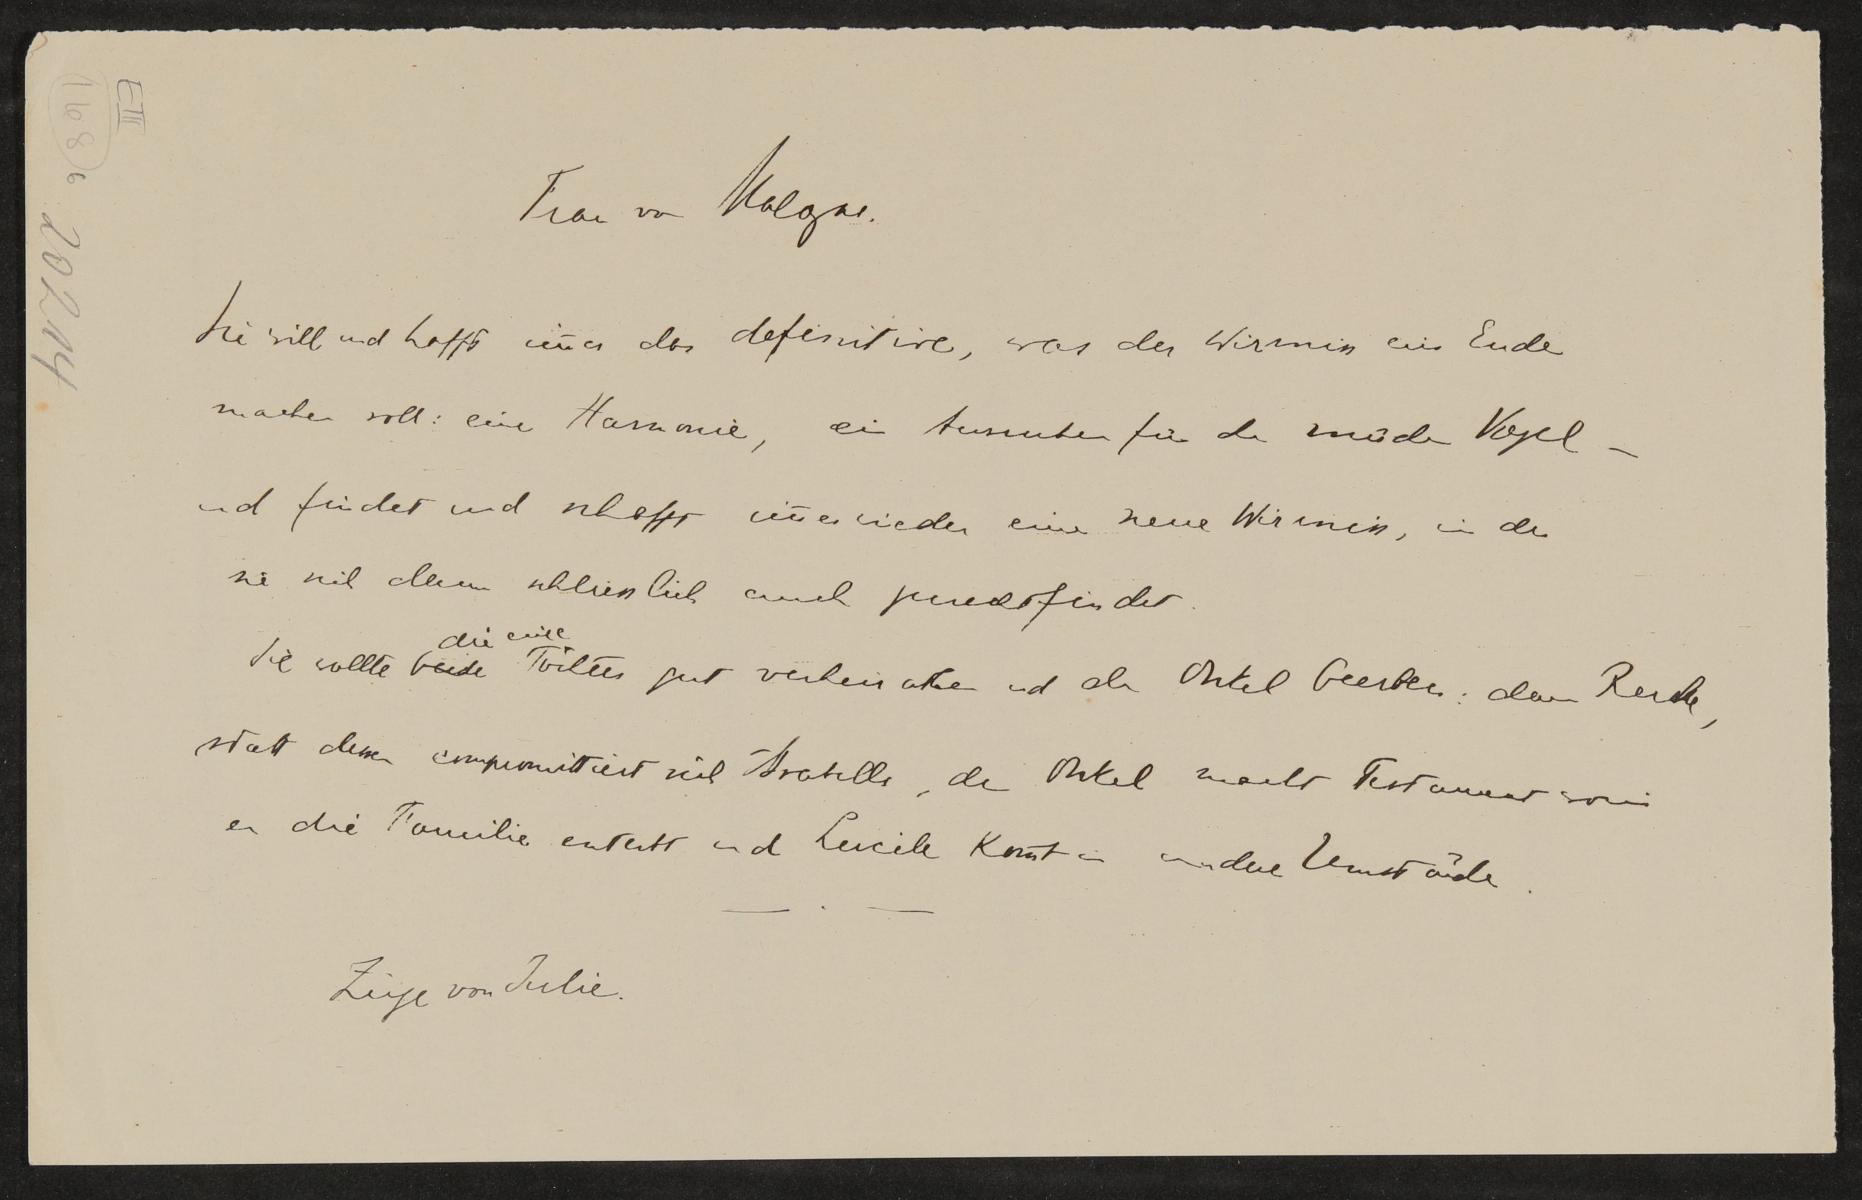 E III
168/6
20214
Frau von Malogne.
Sie will und hofft im̄er das definitive, was der Wirrniss ein Ende
machen soll: eine Harmonie, ein Ausruhen für den müden Vogel –
und findet und schafft im̄er wieder eine neue Wirrniss, in der
sie sich dann schliesslich auch zurechtfindet.
die eine
Sie wollte beide Töchter gut verheirathen und den Onkel beerben: dann Ruhe,
statt dessen compromittiert sich Arabella, der Onkel macht Testament worin
er die Familie enterbt und Lucile kom̄t in andere Umstände.
— . —
Züge von Julie.